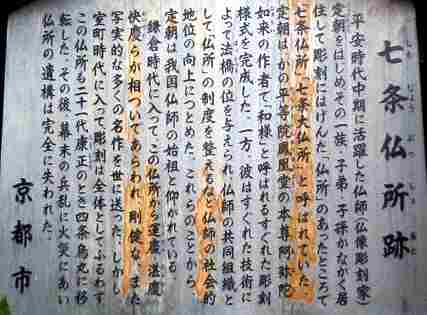 七条仏所跡
しちじょうぶっしょあと
平安時代中期に活躍した仏師(仏像彫刻家)
定朝をはじめその一族、子弟、子孫がながく居
住して彫刻にはげんだ「仏所」のあったところで
「七条仏所」「七条大仏所」と呼ばれていた。
定朝はかの平等院鳳凰堂の本尊阿弥陀
如来の作者で「和様」と呼ばれるすぐれた彫刻
様式を完成した。一方、彼はすぐれた技術に
よって法橋の位を与えられ、仏師の共同組織と
して「仏所」の制度を整えるなど仏師の社会的
地位の向上につとめた。これらのことから、
定朝は我国仏師の始祖と仰がれている。
鎌倉時代に入って、この仏所から運慶、湛慶、
快慶らが相ついであらわれ、剛健な、また
写実的な多くの名作を世に送った。しかし
室町時代に入って彫刻は全体としてふるわず
この仏所も二十一代康正のとき四条烏丸に移
転した。その後、幕末の兵乱に火災にあい
仏所の遺構は完全に失われた。
京都市